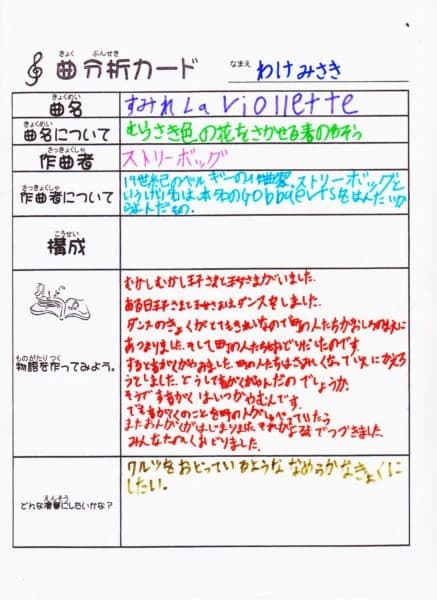 きょく ぶんせき
曲分析カード
なまえ わけみさき
きょくめい
曲名 すみれ La Viollette
きょくめい
曲名について むらさき色の花をさかせる春のやそう
さっきょくしゃ
作曲者 ストリーボッグ
さっきょくしゃ
作曲者について
19世紀のベルギーの作曲家。ストリーボッグと
いうげい名は、本名のGobbaertsをはんたいか
らよんだもの。
こうせい
構成
ものがたり つく
物語を作ってみよう。
むかしむかし王子さまと王女さまがいました。
ある日王子さまと王女さまはダンスをしました。
ダンスのきょくがとてもきれいなので町の人たちがおしろのまえに
あつまりました。そして町の人たちもおどりだしたのです。
するとおんがくがやみました。町の人たちはさみしくなって家にかえろ
うとしました。どうしておんがくがやんだのでしょうか。
そうですおんがくはいつかやむんです。
でもおんがくのことを町の人がしゃべっていたら
またおんがくがはじまりました。それがよるまでつづきました。
みんなたのしくおどりました。
えんそう
どんな演奏にしたいかな？
ワルツをおどっているような なめらかなきょくに
したい。